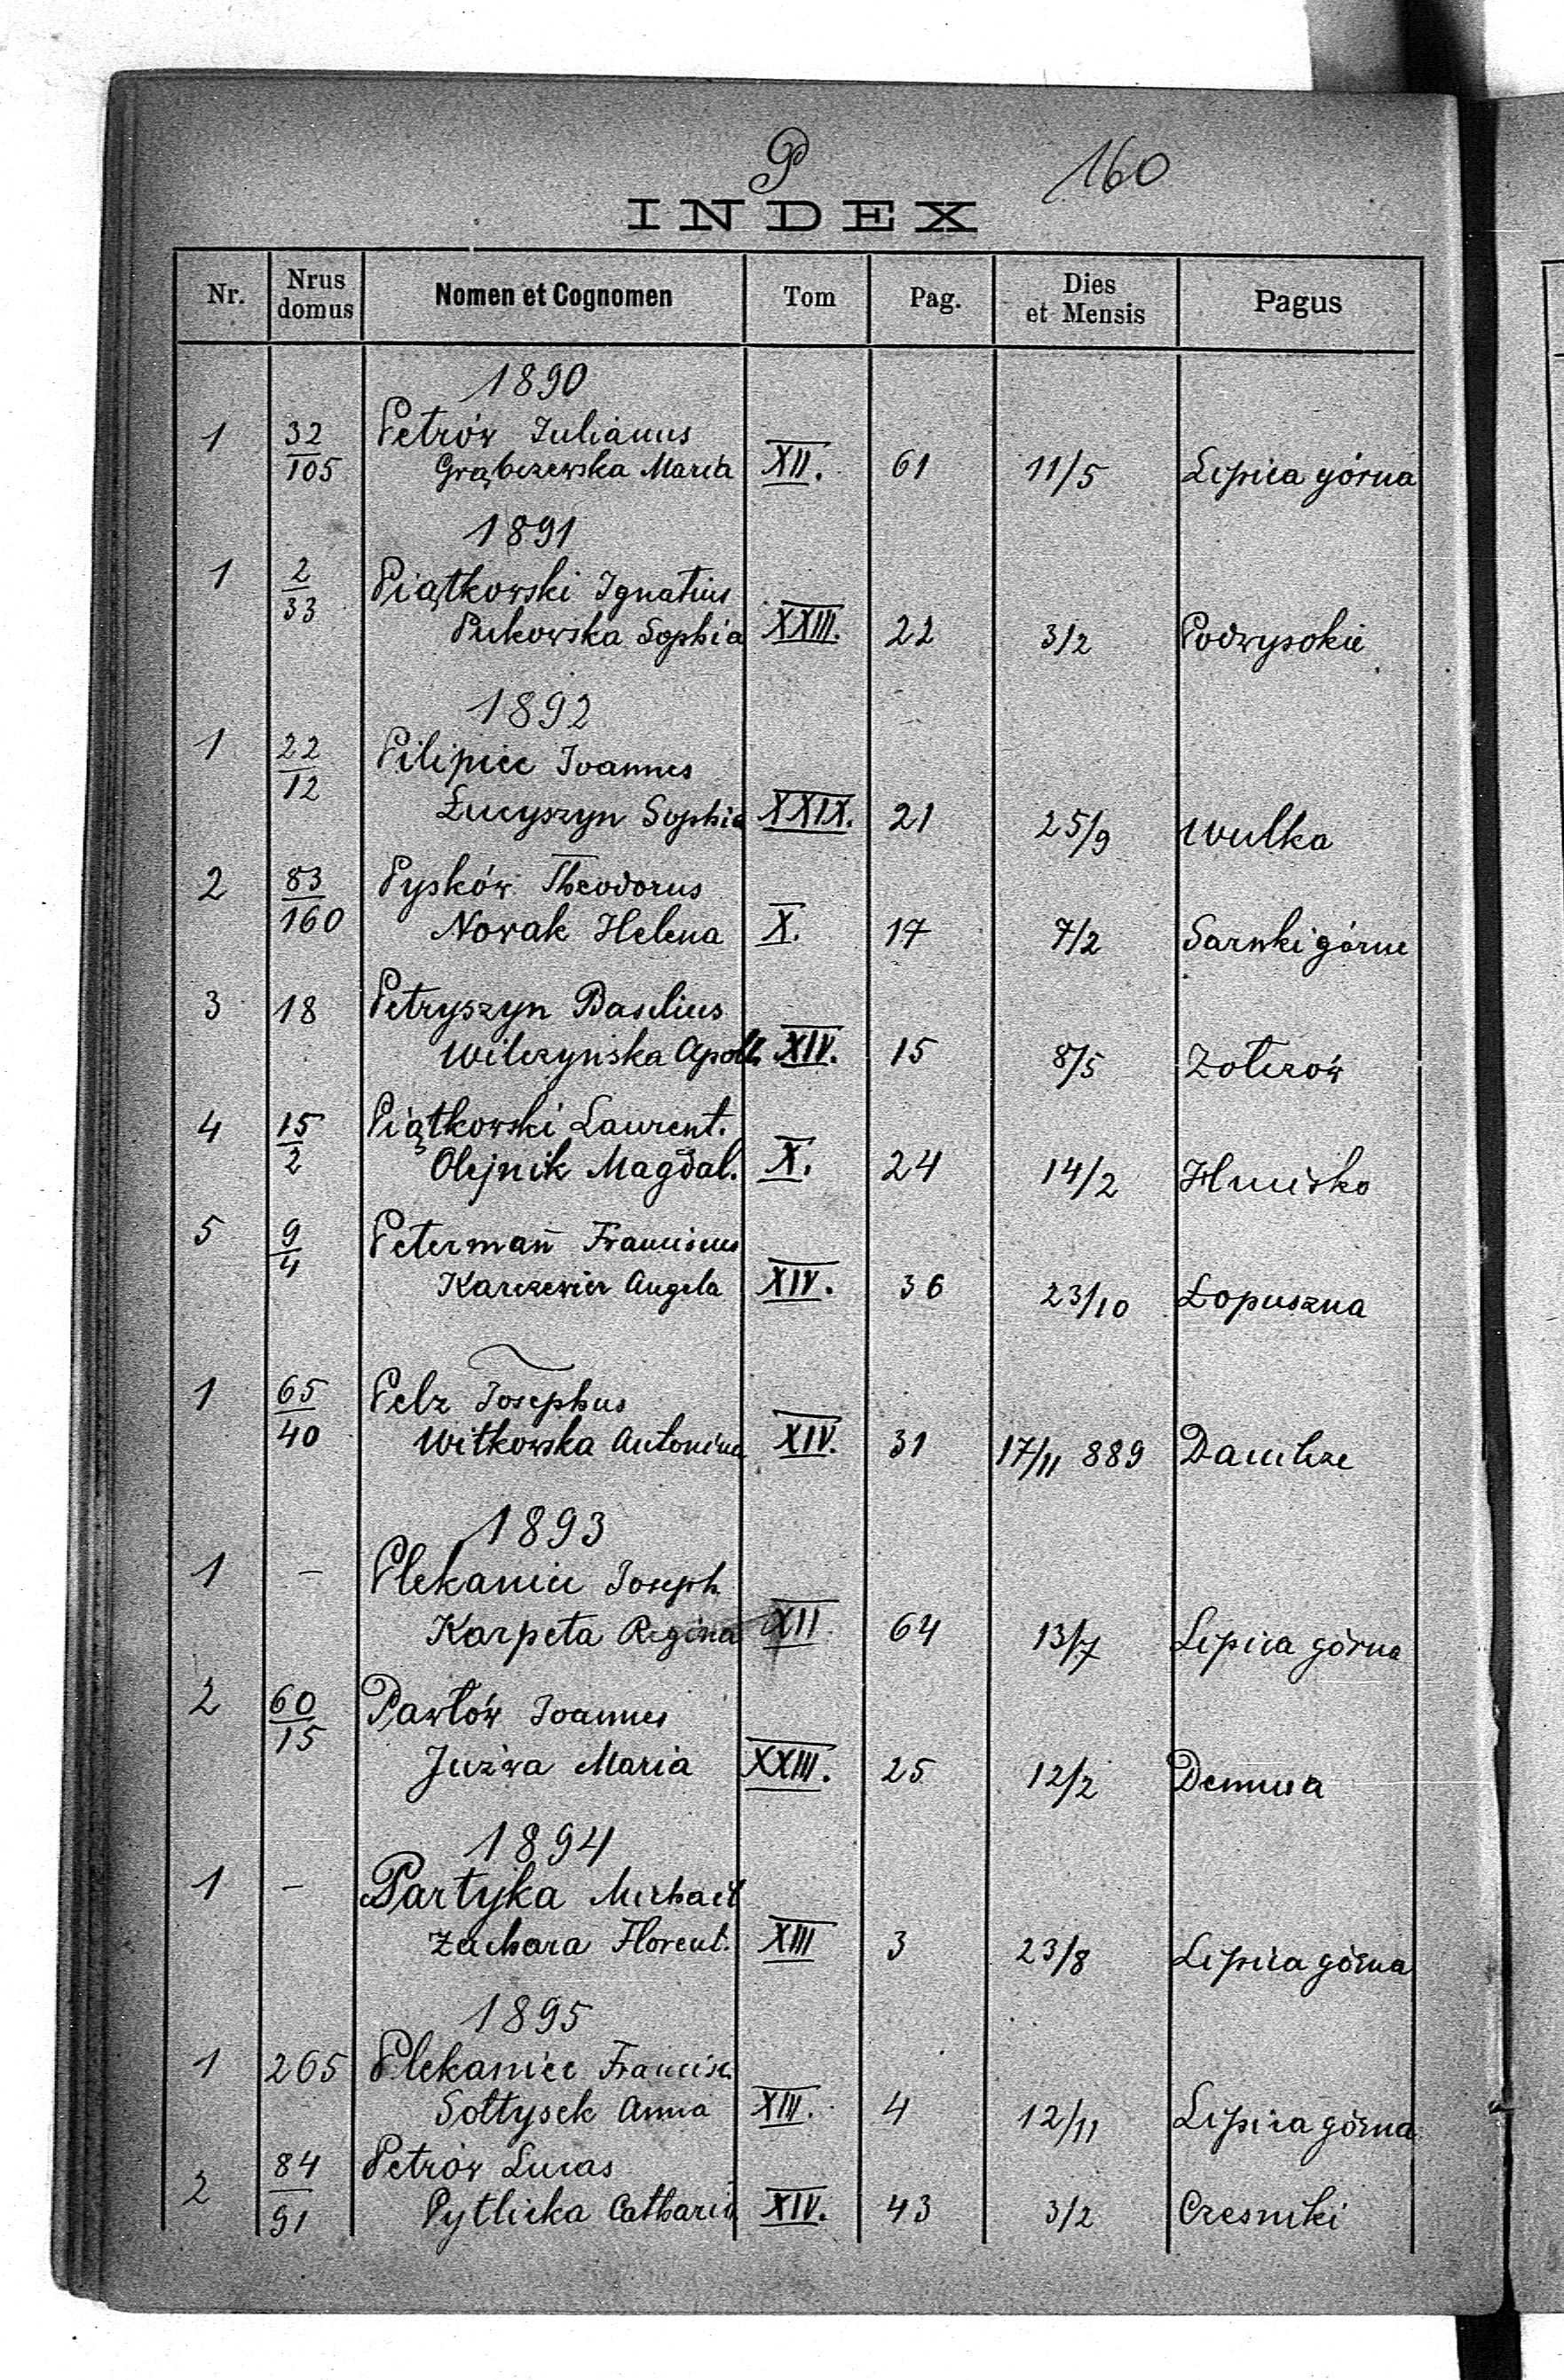 P 160
INDEX
Nr. Nrus domus Nomen et Cognomen Tom Pag. Dies et Mensis Pagus
1890
1 32/105 Petrów Julianus
Grąbczewska Maria XII. 61 11/5 Lipica górna
1891
1 2/33 Piątkowski Ignatius
Pukowska Sophia XXIII. 22 3/2 Podwysokie
1892
1 22/12 Pilipiec Joannes
Łucyszyn Sophia XXIX. 21 25/9 Wulka
2 83/160 Pysków Theodorus
Nowak Helena X. 17 7/2 Sarnki górne
3 18 Petryszyn Basilius
Wilczyńska Apoll. XIV. 15 8/5 Zołczów
4 15/2 Piątkowski Laurent.
Olejnik Magdal. X. 24 14/2 Hucisko
5 9/4 Petermań Franciscus
Karczewicz Angela XIV. 36 23/10 Łopuszna
1 65/40 Pelz Josephus
Witkowska Antonina XIV. 31 17/11 889 Danilcze
1893
1 – Plekaniec Joseph
Karpeta Regina XII 64 13/7 Lipica górna
2 60/15 Pawłów Joannes
Juźwa Maria XXIII. 25 12/2 Demnia
1894
1 – Partyka Michael
Zachara Florent. XIII 3 23/8 Lipica górna
1895
1 265 Plekaniec Francisc.
Sołtysek Anna XIII. 4 12/11 Lipica górna
2 84/91 Petrów Lucas
Pytlicka Catharin XIV. 43 3/2 Czesniki